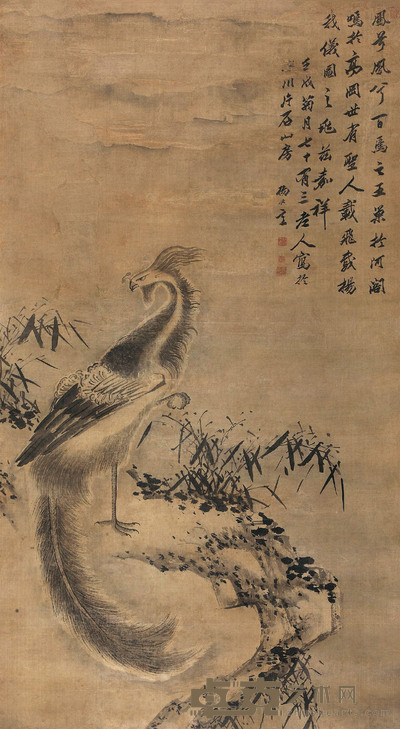 鳳兮鳳兮百鳥之王巢於河閣
鳴於高岡世有聖人載飛載揚
我儀圖之兆茲嘉祥
壬戌菊月七十有三老人寫於
川片石山房